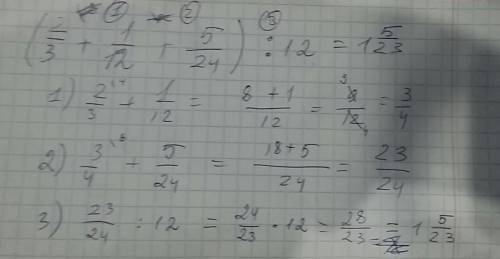 ① ② ③
(2/3 + 1/12 + 5/24) : 12 = 1 5/23
1) 2/3 + 1/12 = 8+1/12 = 9/12 = 3/4
2) 3/4 + 5/24 = 18+5/24 = 23/24
3) 23/24 : 12 = 24/23 · 12 = 28/23 = 1 5/23